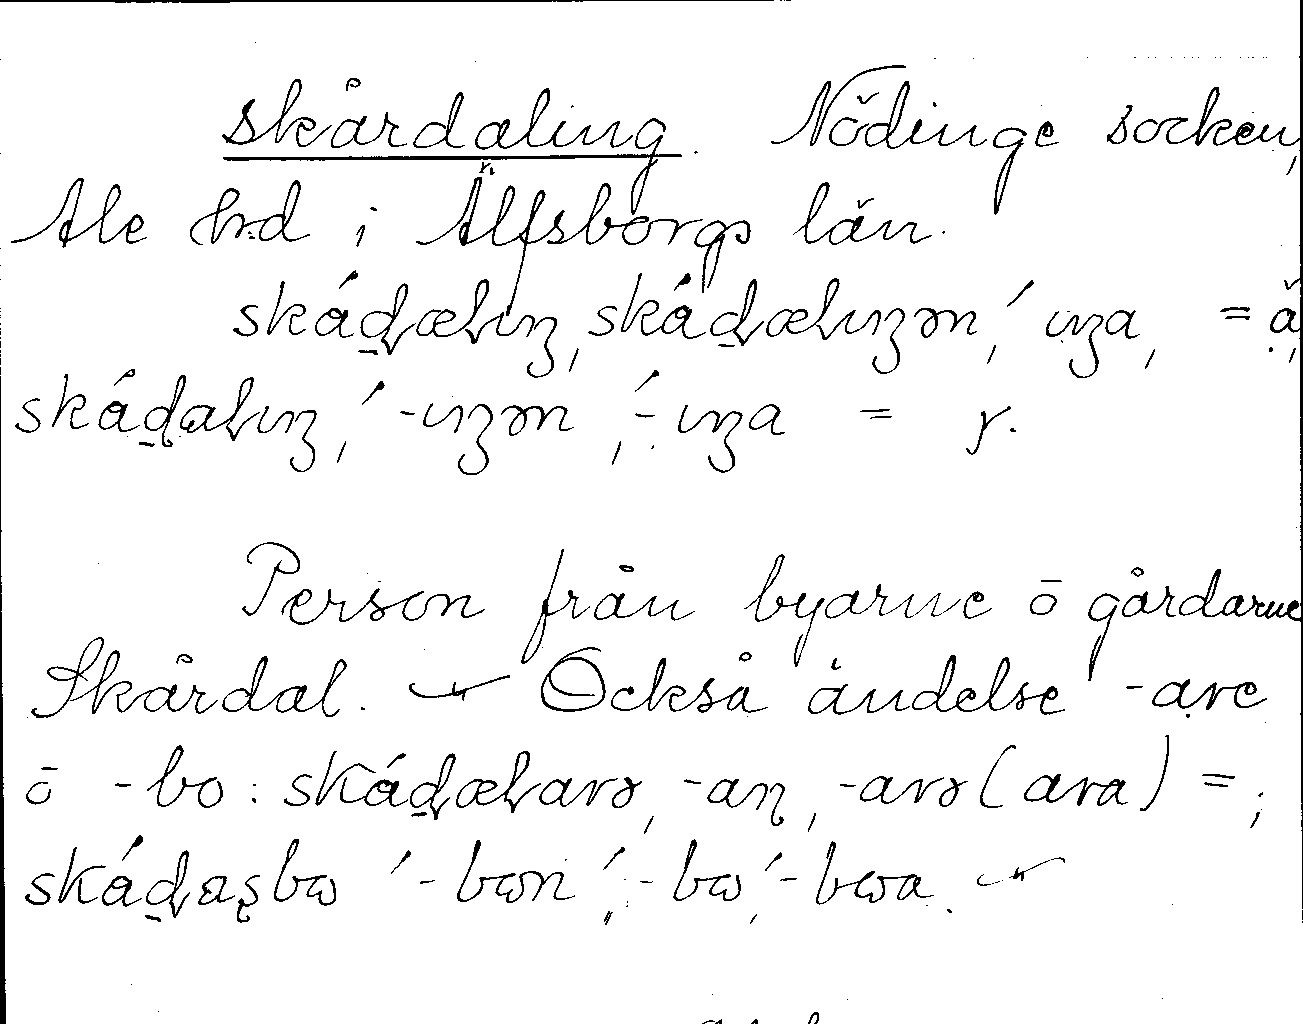 skårdaling. Nödinge socken,
Ale hrd i Älfsborgs län.
skádælıŋ, skádælıŋən, ıŋa, = ä,
skádalıŋ, -ıŋən, -ıŋa = y.
Person från byarne ō gårdarne
Skårdal. — Också ändelse -are
ō -bo: skádælarə, -aɳ, -arə (ara) = ;
skádaʂbω -bωn, -bω, -bωa. —